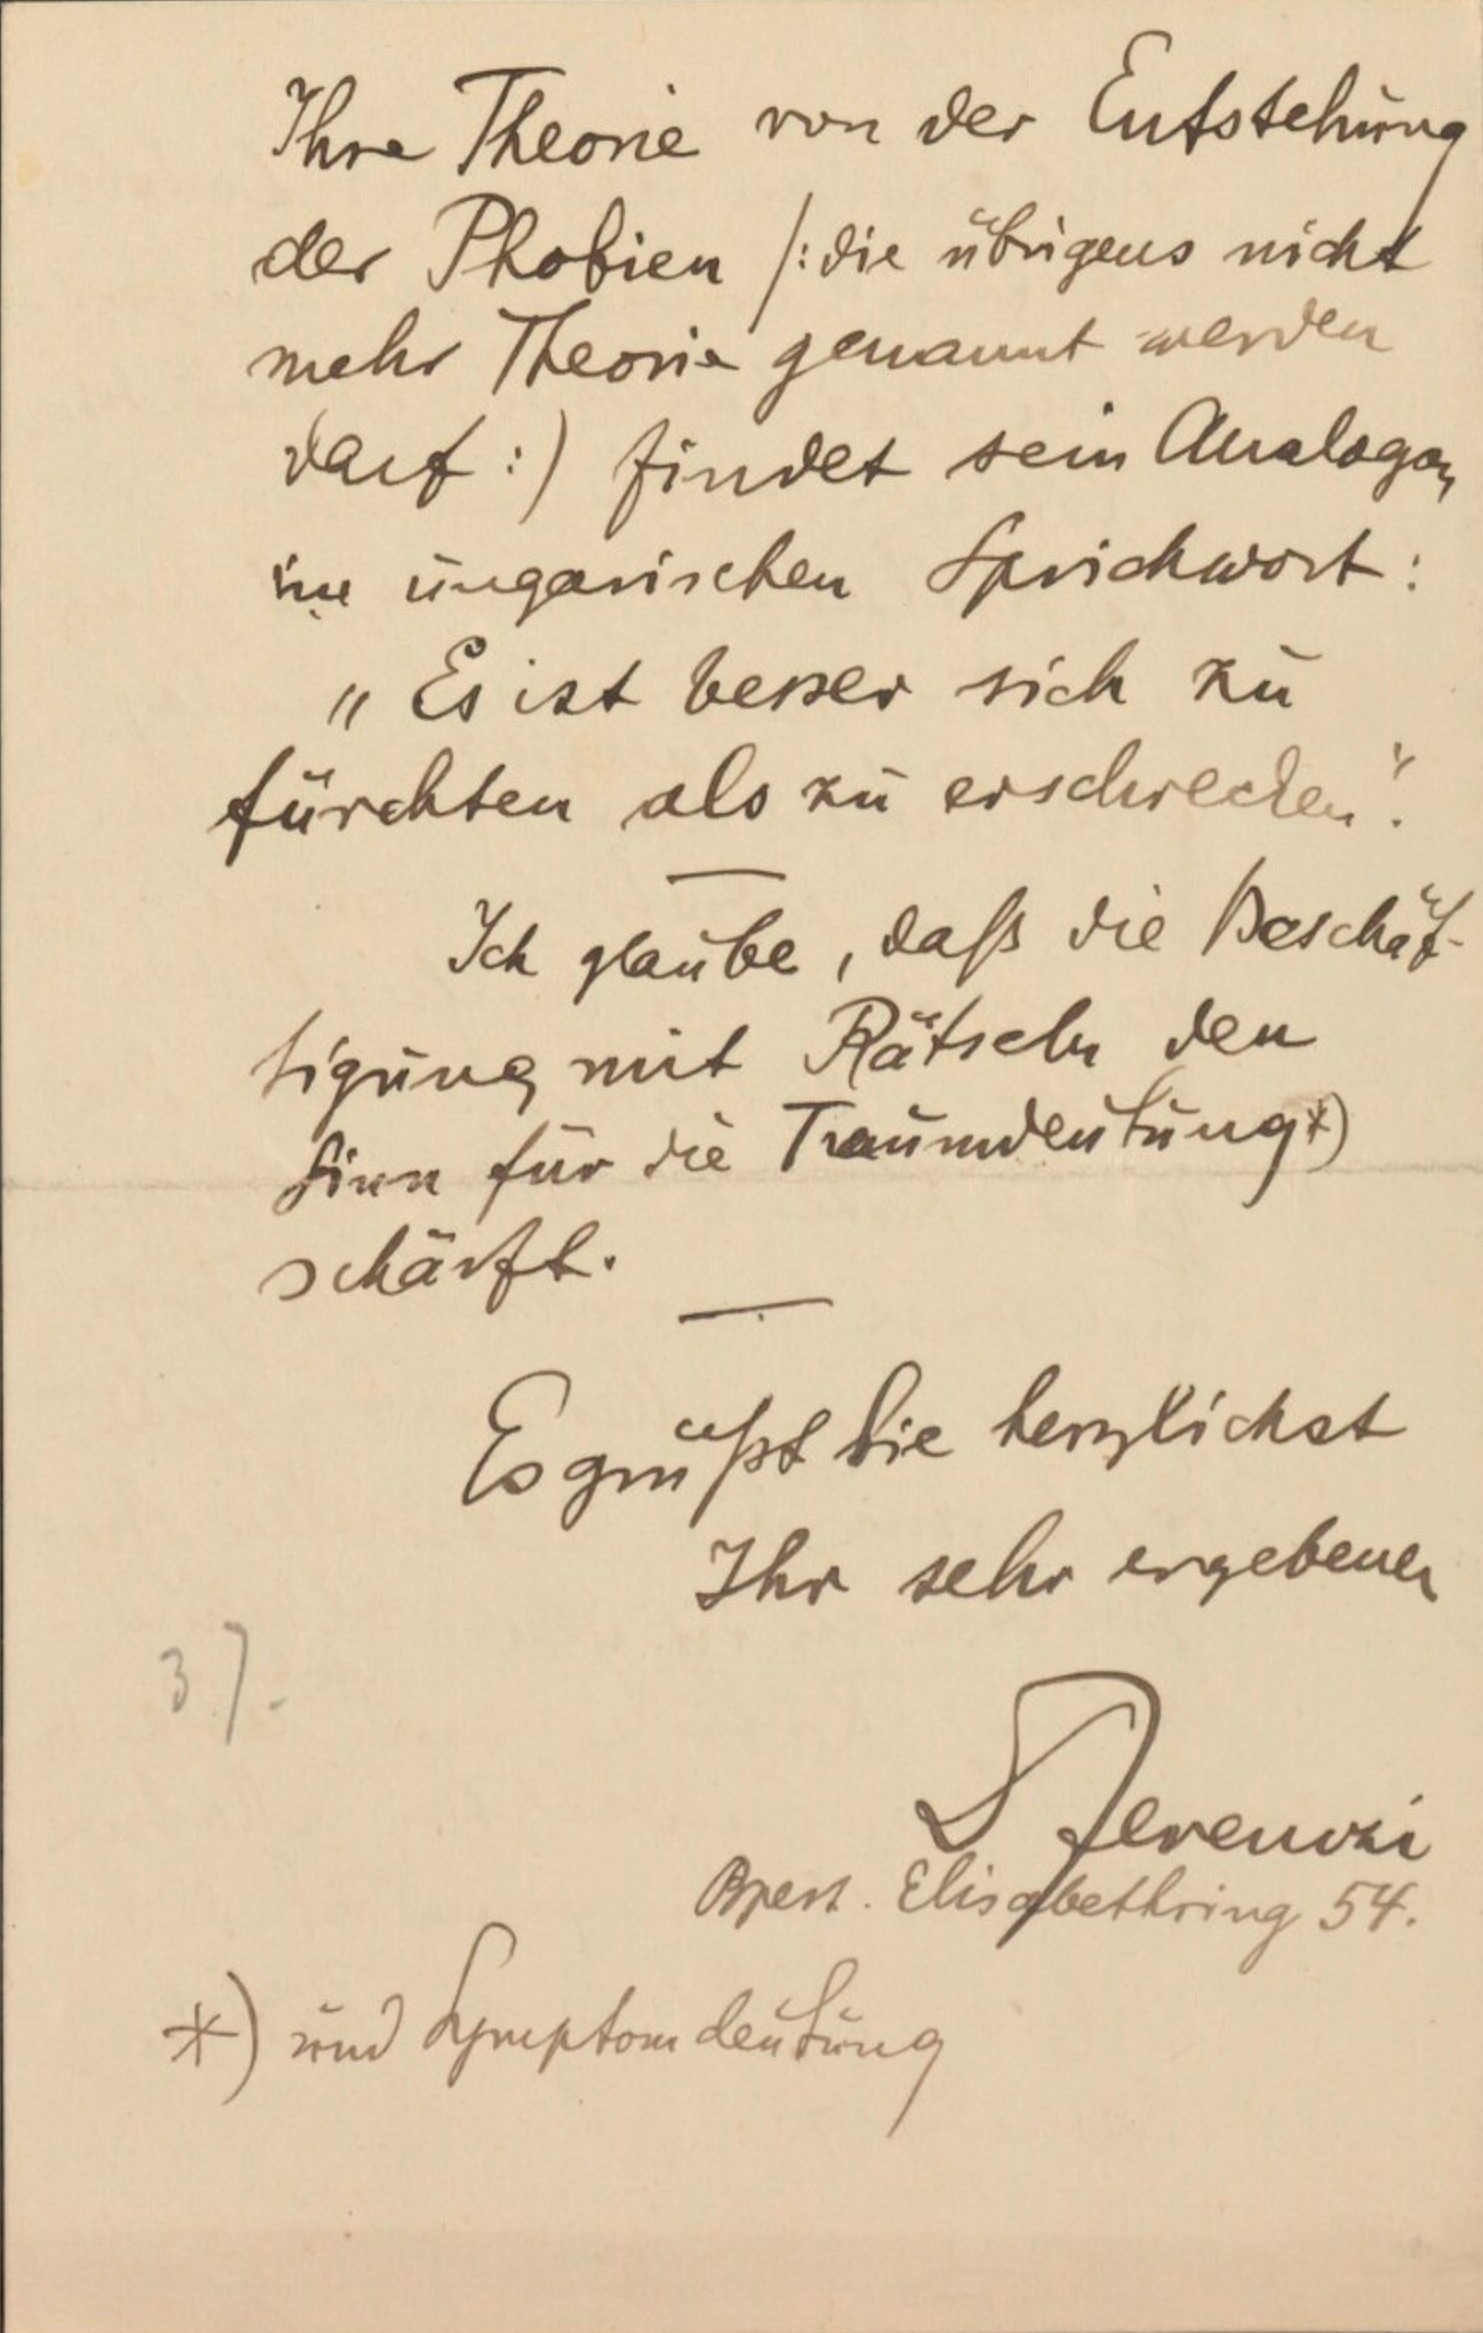 Ihre Theorie von der Entstehung
der Phobien /: die übrigens nicht
mehr Theorie genannt werden
darf :) findet sein Analogon
im ungarischen Sprichwort:
„Es ist besser sich zu
fürchten als zu erschrecken“.
Ich glaube, daß die Beschäf-
tigung mit Rätseln den
Sinn für die Traumdeutung*)
schärft.
Es grüßt Sie herzlichst
Ihr sehr ergebener
Ferenczi
Bpest. Elisabethring 54.
*) und Symptomdeutung